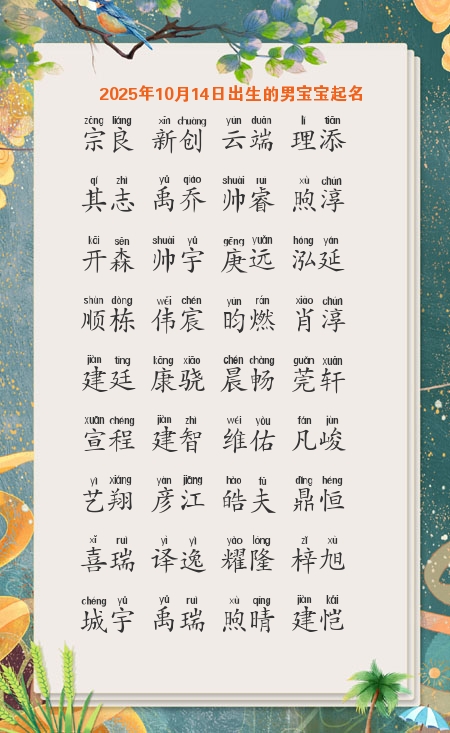 2025年10月14日出生的男宝宝起名
zōng liáng xīn chuàng yún duān lǐ tiān
宗良 新创 云端 理添
qí zhì yǔ qiáo shuài ruì xù chún
其志 禹乔 帅睿 煦淳
kāi sēn shuài yǔ gēng yuǎn hóng yán
开森 帅宇 庚远 泓延
shùn dòng wěi chén yún rán xiào chún
顺栋 伟宸 昀燃 肖淳
jiàn tíng kāng xiāo chén chàng guǎn xuān
建廷 康骁 晨畅 莞轩
xuān chéng jiàn zhì wéi yòu fán jùn
宣程 建智 维佑 凡峻
yì xiáng yàn jiāng hào fū dǐng héng
艺翔 彦江 皓夫 鼎恒
xǐ ruì yì yì yào lóng zǐ xù
喜瑞 译逸 耀隆 梓旭
chéng yǔ yǔ ruì xù qíng jiàn kǎi
城宇 禹瑞 煦晴 建恺